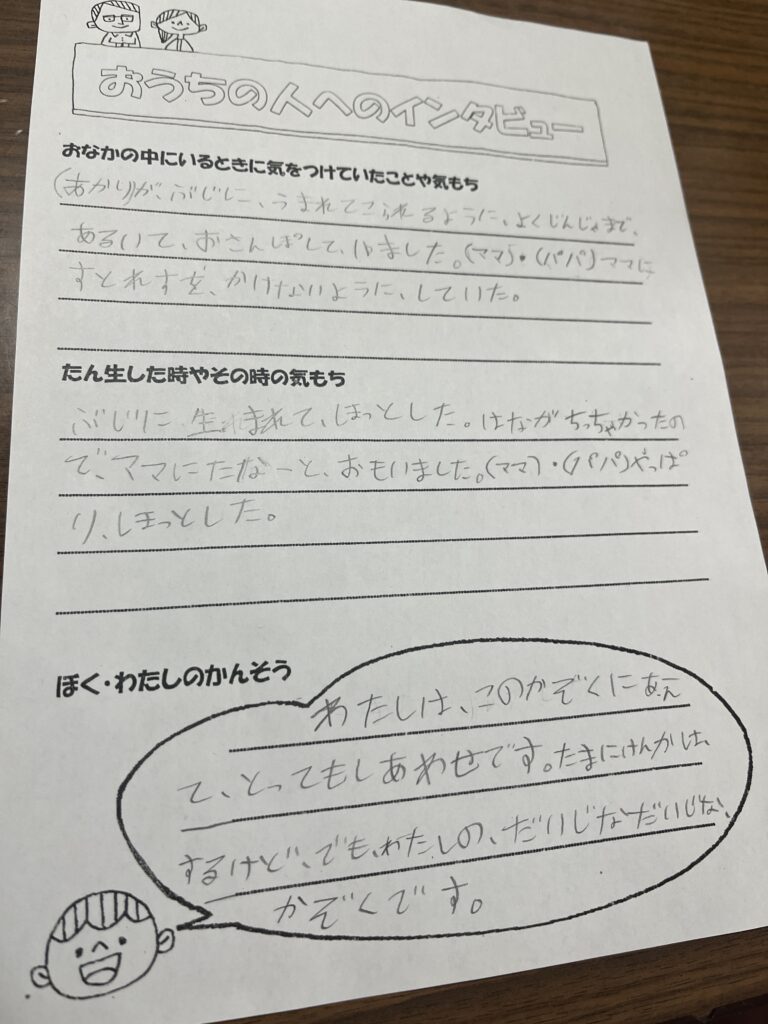 おうちの人へのインタビュー
おなかの中にいるときに気をつけていたことや気もち
(あかり)が、ぶじに、うまれてこられるように、よくじんじゃまで、
あるいて、おさんぽして、いました。(ママ)・(パパ)ママに
すとれすを、かけないように、していた。
たん生した時やその時の気もち
ぶじに生まれて、ほっとした。はながちっちゃかったの
で、ママにたなーと、おもいました。(ママ)・(パパ)やっぱ
り、ほっとした。
ぼく・わたしのかんそう
わたしは、このかぞくにあえ
て、とってもしあわせです。たまにけんかは、
するけど、でも、わたしの、だいじなだいじな、
かぞくです。